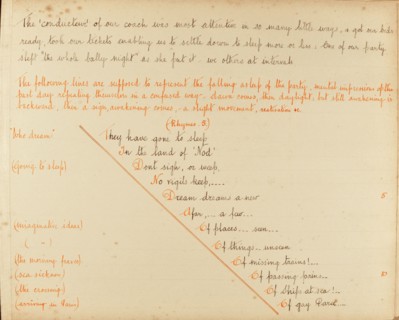 The 'conducteur' of our coach was most attentive in so many little ways, & got our beds
ready, took our tickets enabling us to settle down to sleep more or less. One of our party
slept "the whole bally night" as she put it. We others at intervals
The following lines are supposed to represent the falling asleep of the party, mental impressions of the
past day repeating themselves in a confused way - dawn comes, then daylight, but still awakening is
backward, then a sign, awakening comes, a slight movement,
(Rhymes. 5.)
They have gone to sleep
In the land of 'Nod'
(going to sleep) Dont sigh, or weep,
No vigils keep,.....
Dream dreams a new 5
Afar,... a far...
(imaginative ideas) Of places... seen....
( " ) Of things.. unseen
(the morning train) Of missing trains!...
(sea sickness) Of passing pains... 10
(the crossing) Of Ships at sea!...
(arriving in Paris) Of gay Paree....